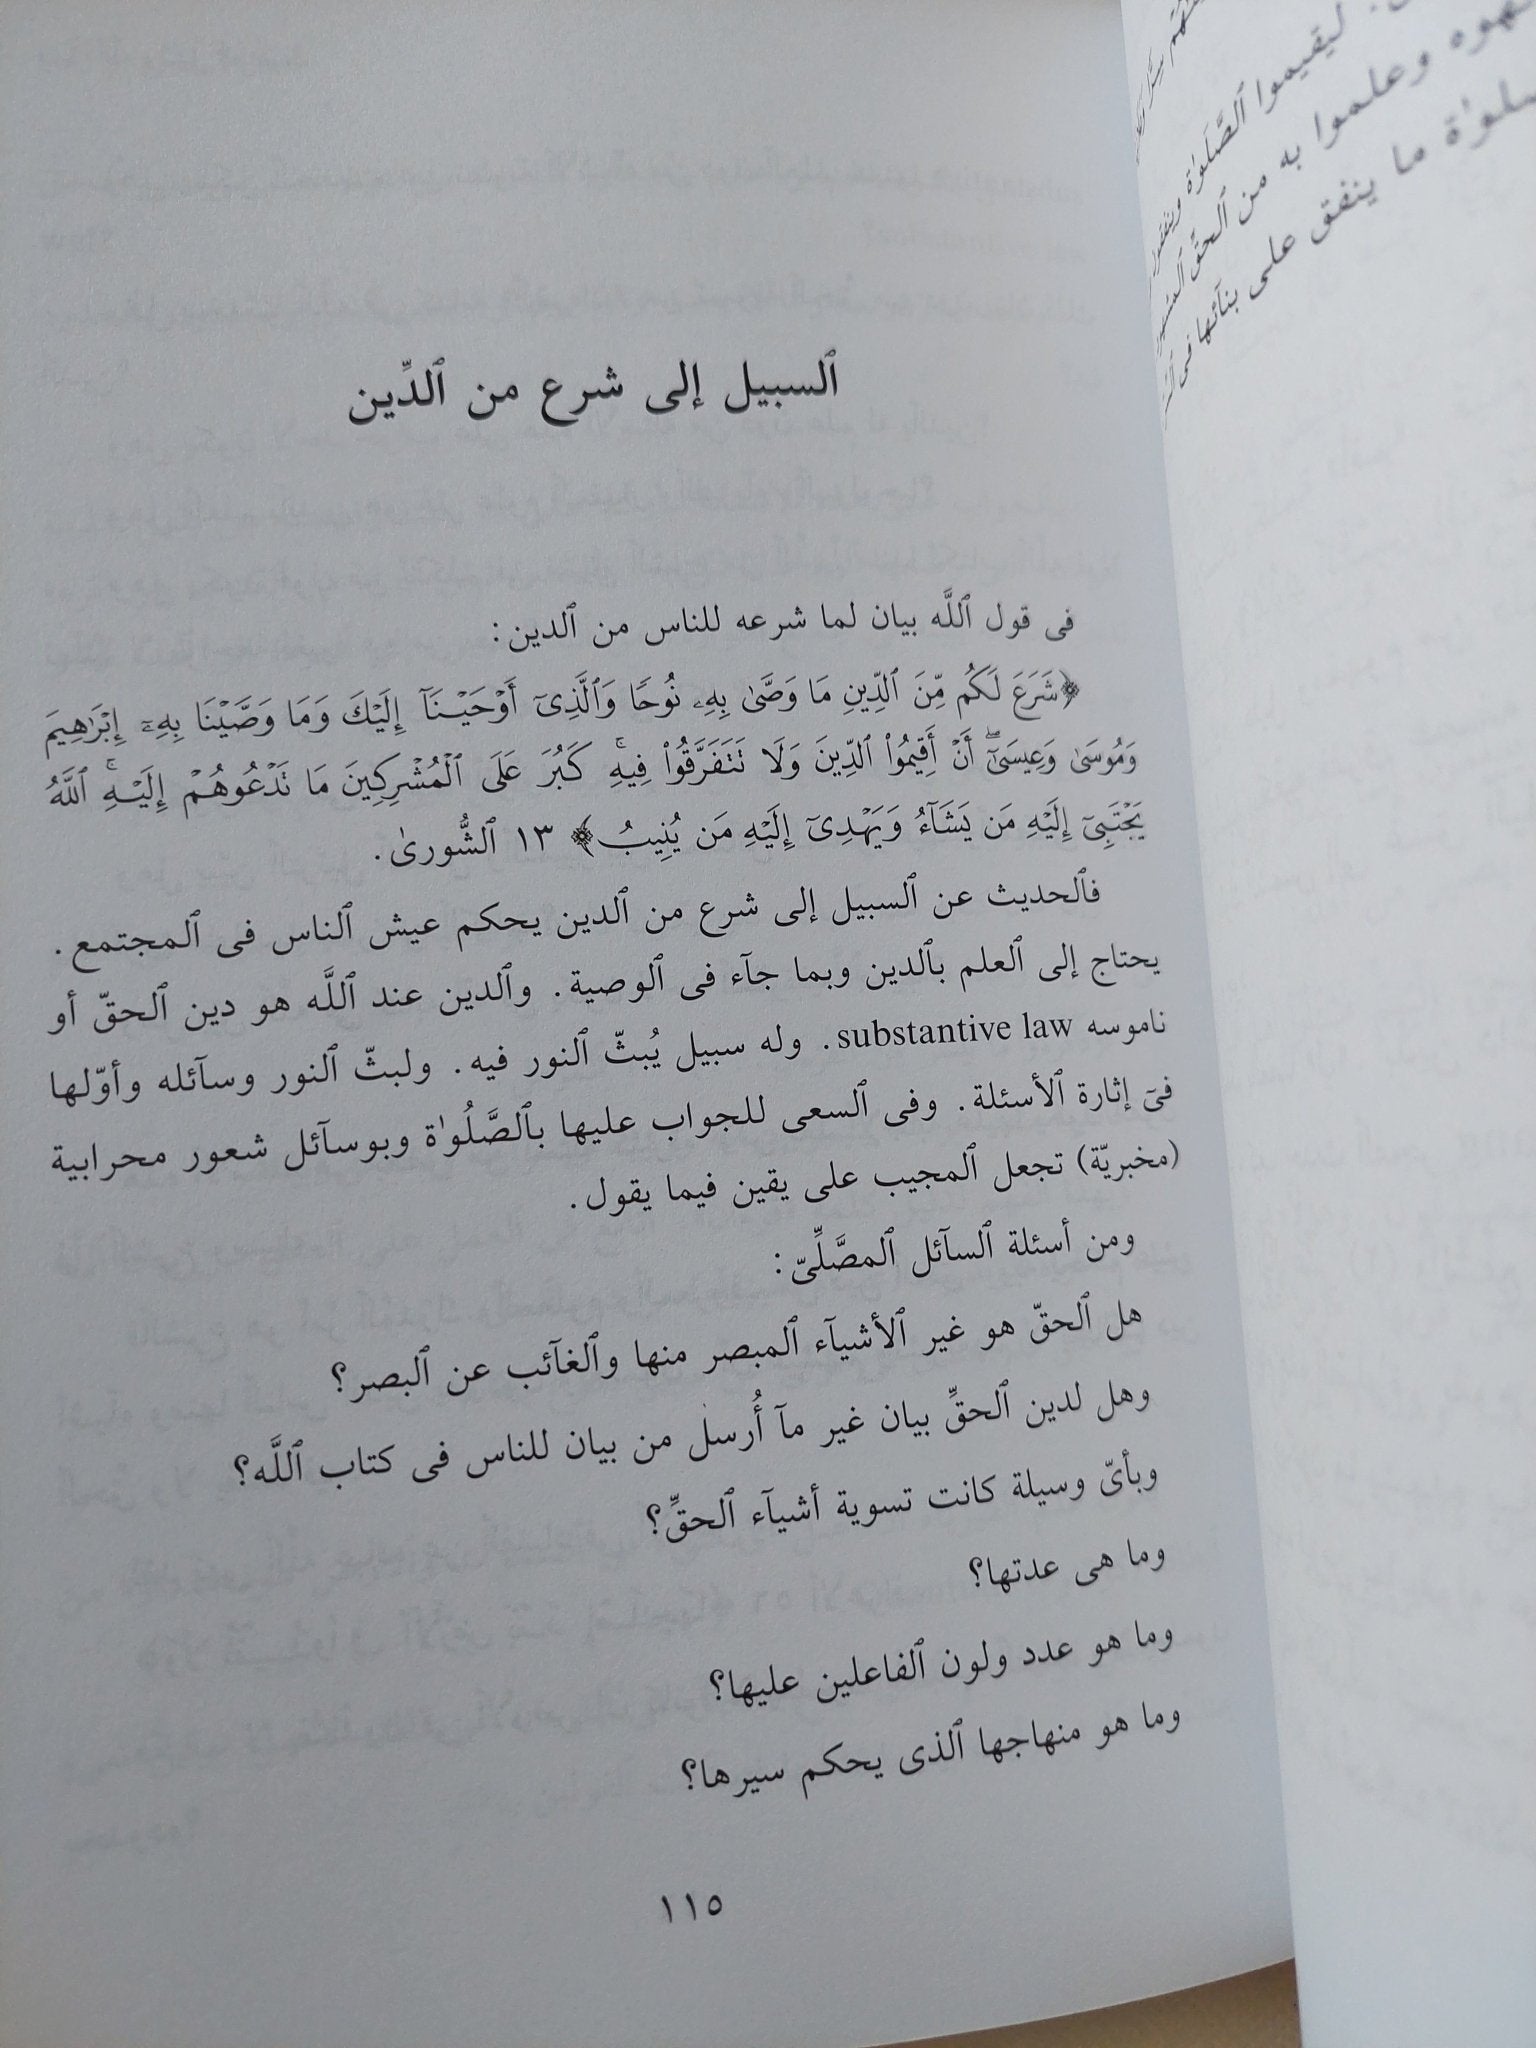 ٱلسبيل إلى شرع من ٱلدِّين
فى قول ٱللَّه بيان لما شرعه للناس من ٱلدين:
﴿شَرَعَ لَكُم مِّنَ ٱلدِّينِ مَا وَصَّىٰ بِهِۦ نُوحًا وَٱلَّذِىٓ أَوۡحَيۡنَآ إِلَيۡكَ وَمَا وَصَّيۡنَا بِهِۦٓ إِبۡرَٰهِيمَ
وَمُوسَىٰ وَعِيسَىٰٓۖ أَنۡ أَقِيمُواْ ٱلدِّينَ وَلَا تَتَفَرَّقُواْ فِيهِۚ كَبُرَ عَلَى ٱلۡمُشۡرِكِينَ مَا تَدۡعُوهُمۡ إِلَيۡهِۚ ٱللَّهُ
يَجۡتَبِىٓ إِلَيۡهِ مَن يَشَآءُ وَيَهۡدِىٓ إِلَيۡهِ مَن يُنِيبُ﴾ ١٣ ٱلشُّورىٰ.
فٱلحديث عن ٱلسبيل إلى شرع من ٱلدين يحكم عيش ٱلناس فى ٱلمجتمع.
يحتاج إلى ٱلعلم بٱلدين وبما جآء فى ٱلوصية. وٱلدين عند ٱللَّه هو دين ٱلحقّ أو
ناموسه substantive law. وله سبيل يُبثّ ٱلنور فيه. ولبثّ ٱلنور وسآئله وأوّلها
فىٓ إثارة ٱلأسئلة. وفى ٱلسعى للجواب عليها بٱلصَّلُوٰة وبوسآئل شعور محرابية
(مخبريّة) تجعل ٱلمجيب على يقين فيما يقول.
ومن أسئلة ٱلسآئل ٱلمصَّلِّىّ:
هل ٱلحقّ هو غير ٱلأشيآء ٱلمبصر منها وٱلغآئب عن ٱلبصر؟
وهل لدين ٱلحقِّ بيان غير مآ أُرسل من بيان للناس فى كتاب ٱللَّه؟
وبأىّ وسيلة كانت تسوية أشيآء ٱلحقِّ؟
وما هى عدتها؟
وما هو عدد ولون ٱلفاعلين عليها؟
وما هو منهاجها ٱلذى يحكم سيرها؟
١١٥
ليقيموا ٱلصَّلَوٰة
وعلموا به من ٱلحقّ
ما ينفق على بنآئها فى